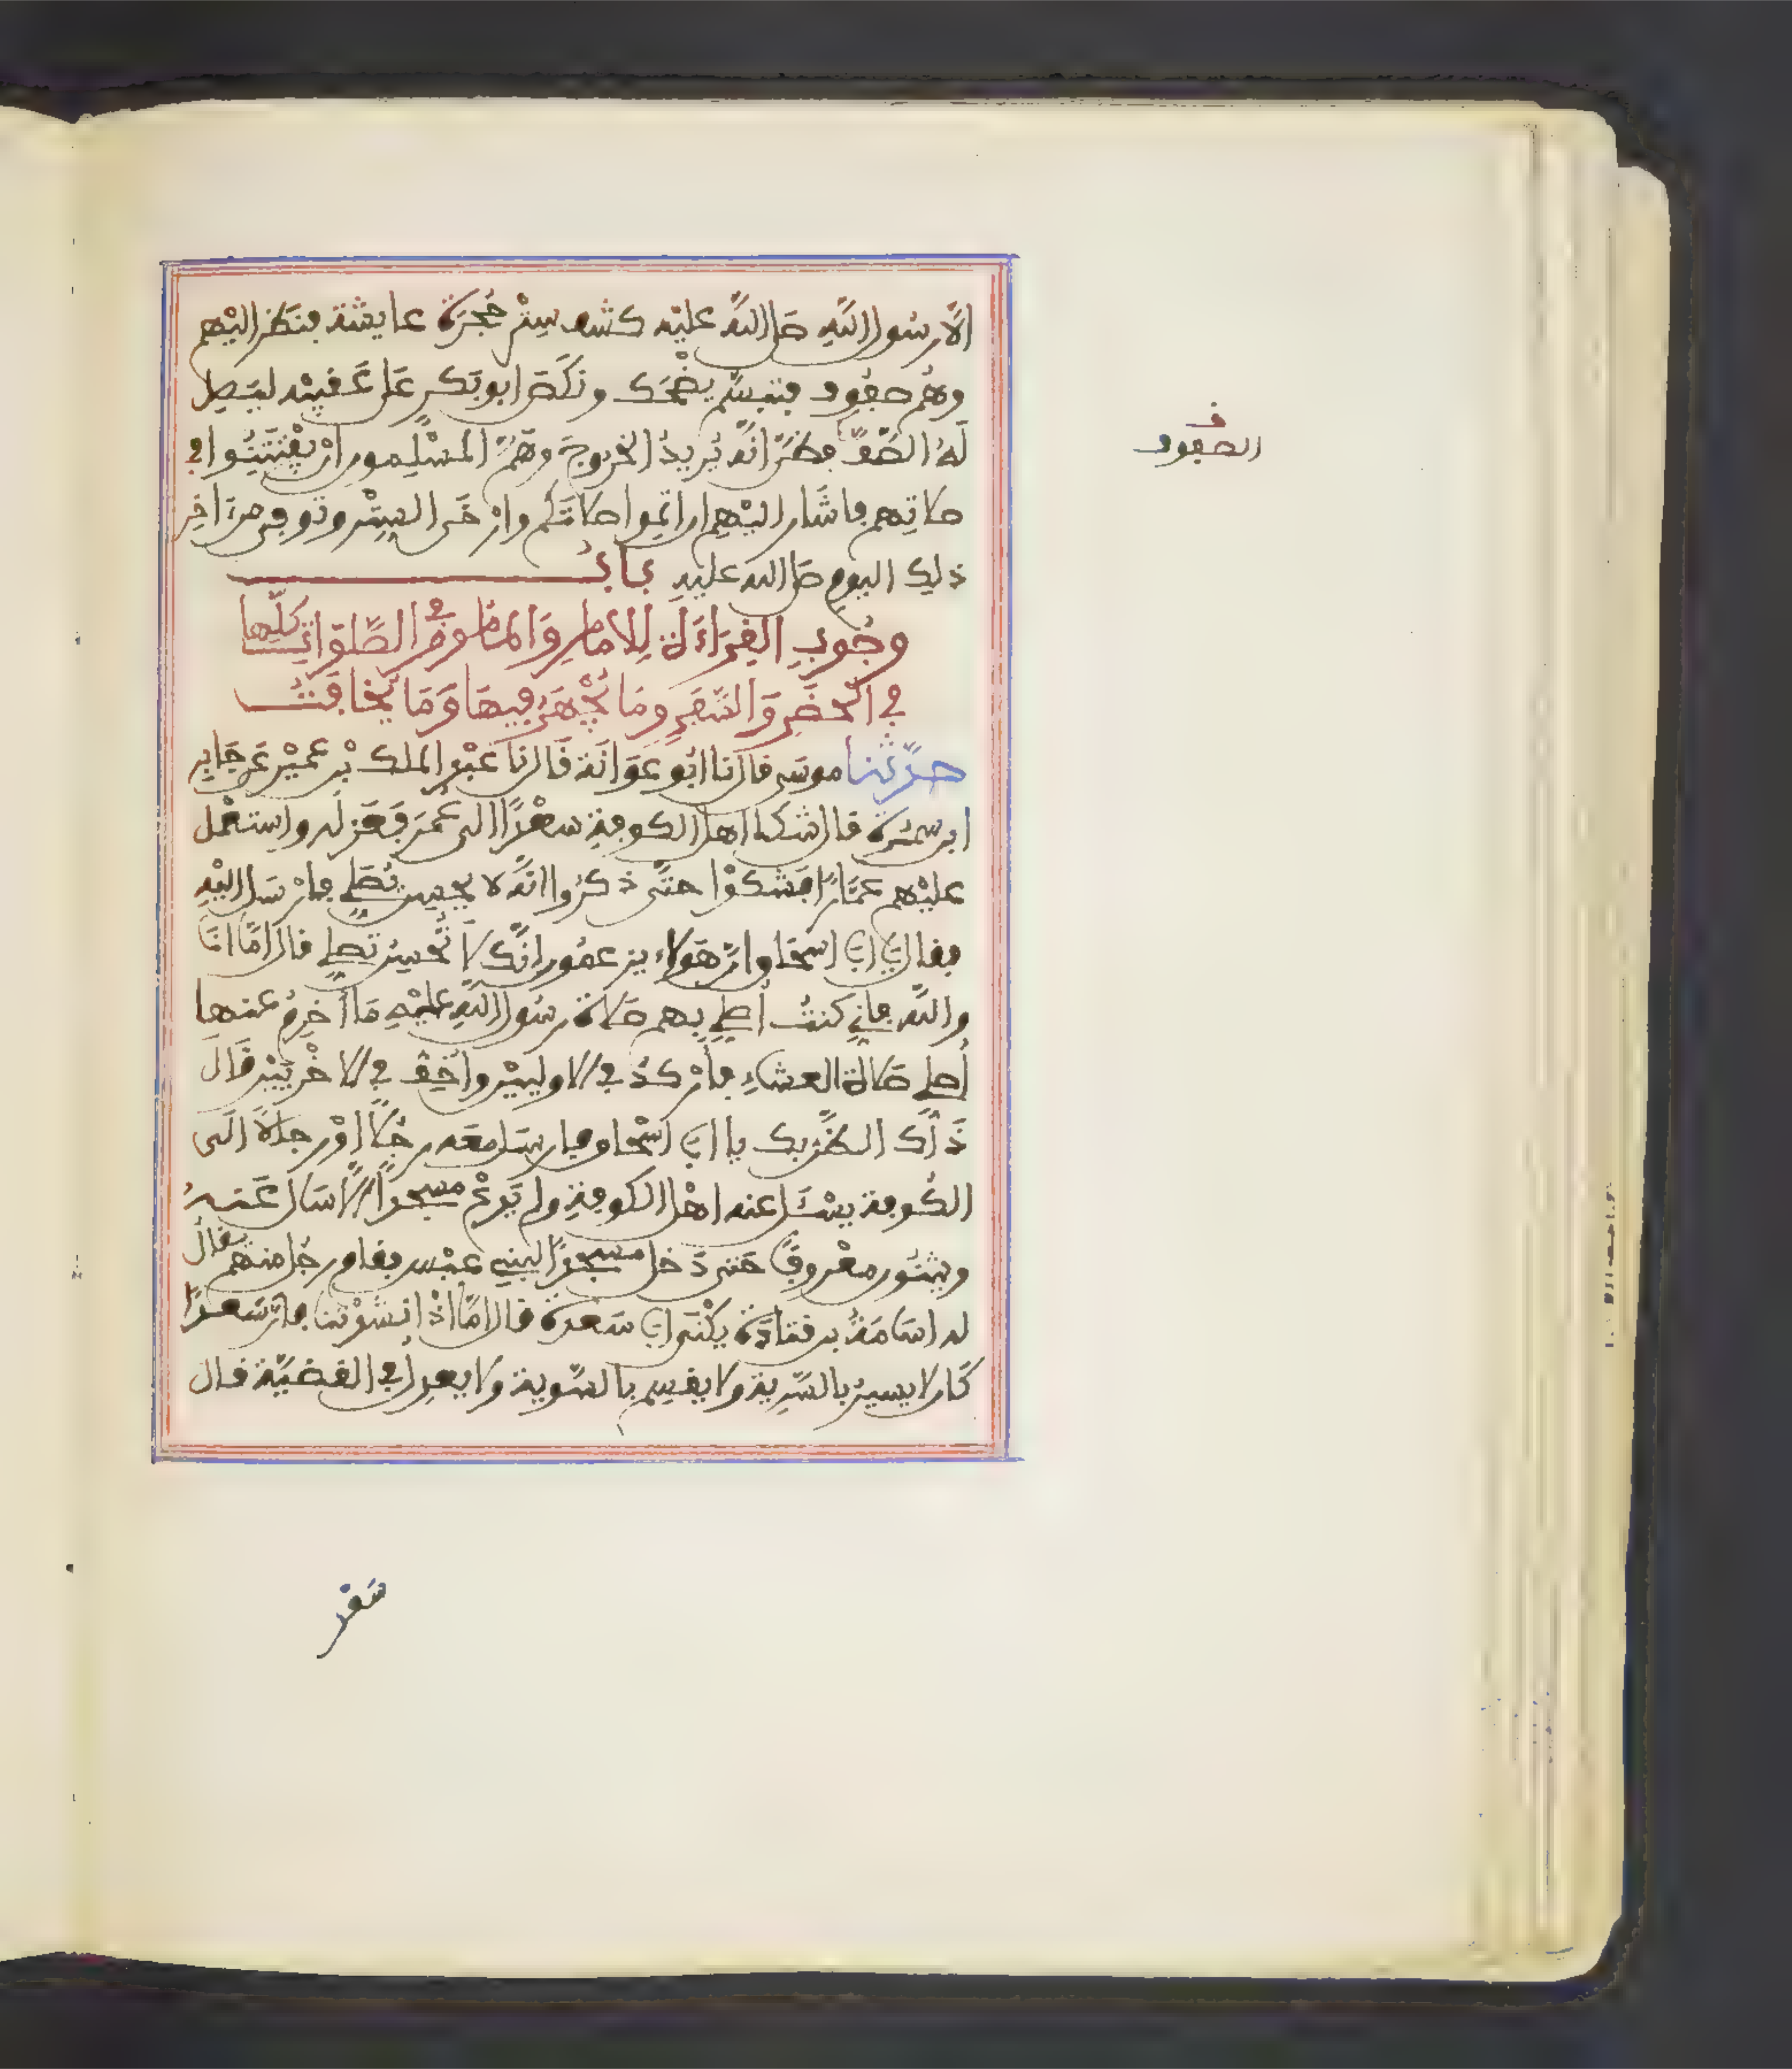 الَّا رسُول اللَّهِ صَلى اللَّهُ عليْه كشف سِتْر حُجْرَة عايشة فنظر اليْهم
وهُم صفُوف فتبسَّم يضْحَك ونكَصَ ابو بَكر عَلى عَقبيْه ليَصِل
لَهُ الصَّفَّ فظَنَّ انَّه يُريدُ الخروجَ وهَمَّ المسْلِمون انْ يَفْتَتِنُوا في
صلاتِهم فاشَار اليْهم ان اتِموا صلاتَكم وارْخَى السِتْر وتوفي من اخِر
ذلِك اليومِ صَلى الله عليْهِ بَابُ
وجُوبِ القِرَاءَةِ لِلامَامِ وَالمَامُومِ في الصَّلوَاتِ كلِّها
في الحَضَرِ وَالسَّفَرِ ومَا يُجْهَرُ فِيهَا وَمَا يُخَافَتُ
حدَّثنا موسَى قال نا ابُو عَوَانَة قَال نا عَبْد الملك بْن عُمَيْر عَن جَابِر
ابن سمُرَة قال شكا اهل الكوفةِ سعْدًا الى عُمَرَ فَعَزله واستَعْمل
عليْهم عمَّارًا فشكَوْا حتَّى ذكرُوا انَّه لا يحْسِن يُصَلي فارْسَل اليْه
فقال يا ابا اسحَاق انَّ هَؤلاء يزعمُون انَّك لَا تُحْسِنُ تصلي قال امَّا انَا
واللَّه فاني كنتُ أصلي بهم صَلاة رسُول اللَّهِ عليْهِ مَا أخرِمُ عنها
أصلي صَلاة العشاءِ فأرْكدُ في الاوليَيْن واُخِفُّ في الاخْريَيْن قَال
ذَاكَ الظَّنُّ بك يا ابا اسْحَاق فارسَل معَه رجُلًا اوْ رجالًا الَى
الكُوفة يسْئَل عنه اهْل الكوفةِ ولم يَدعْ مسجدًا الَّا سَال عَنهُ
ويثنُون معْروفًا حتى دَخل مسجدًا لبنِي عبْس فقام رجُل منهم يقال
له اسَامَةُ بن قتادَة يكْنَى ابا سَعدة قال امَّا اذْ انشدْتنا فانَّ سعدًا
كَان لا يسيرُ بالسَّرِية ولا يقسِم بالسَّوية ولا يعدِل في القضيَّة قال
ف
الصفوف
سَعْد